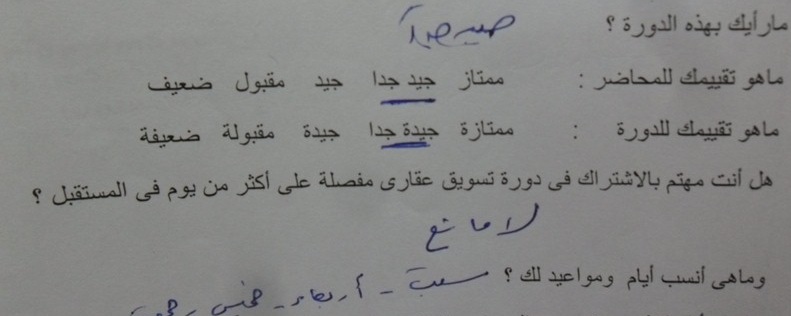 مارأيك بهذه الدورة ؟ جيده جداً
ماهو تقييمك للمحاضر : ممتاز جيد جدا جيد مقبول ضعيف
ماهو تقييمك للدورة : ممتازة جيدة جدا جيدة مقبولة ضعيفة
هل أنت مهتم بالاشتراك فى دورة تسويق عقارى مفصلة على أكثر من يوم فى المستقبل ؟
لا مانع
وماهى أنسب أيام ومواعيد لك ؟ سبت - أربعاء - خميس -